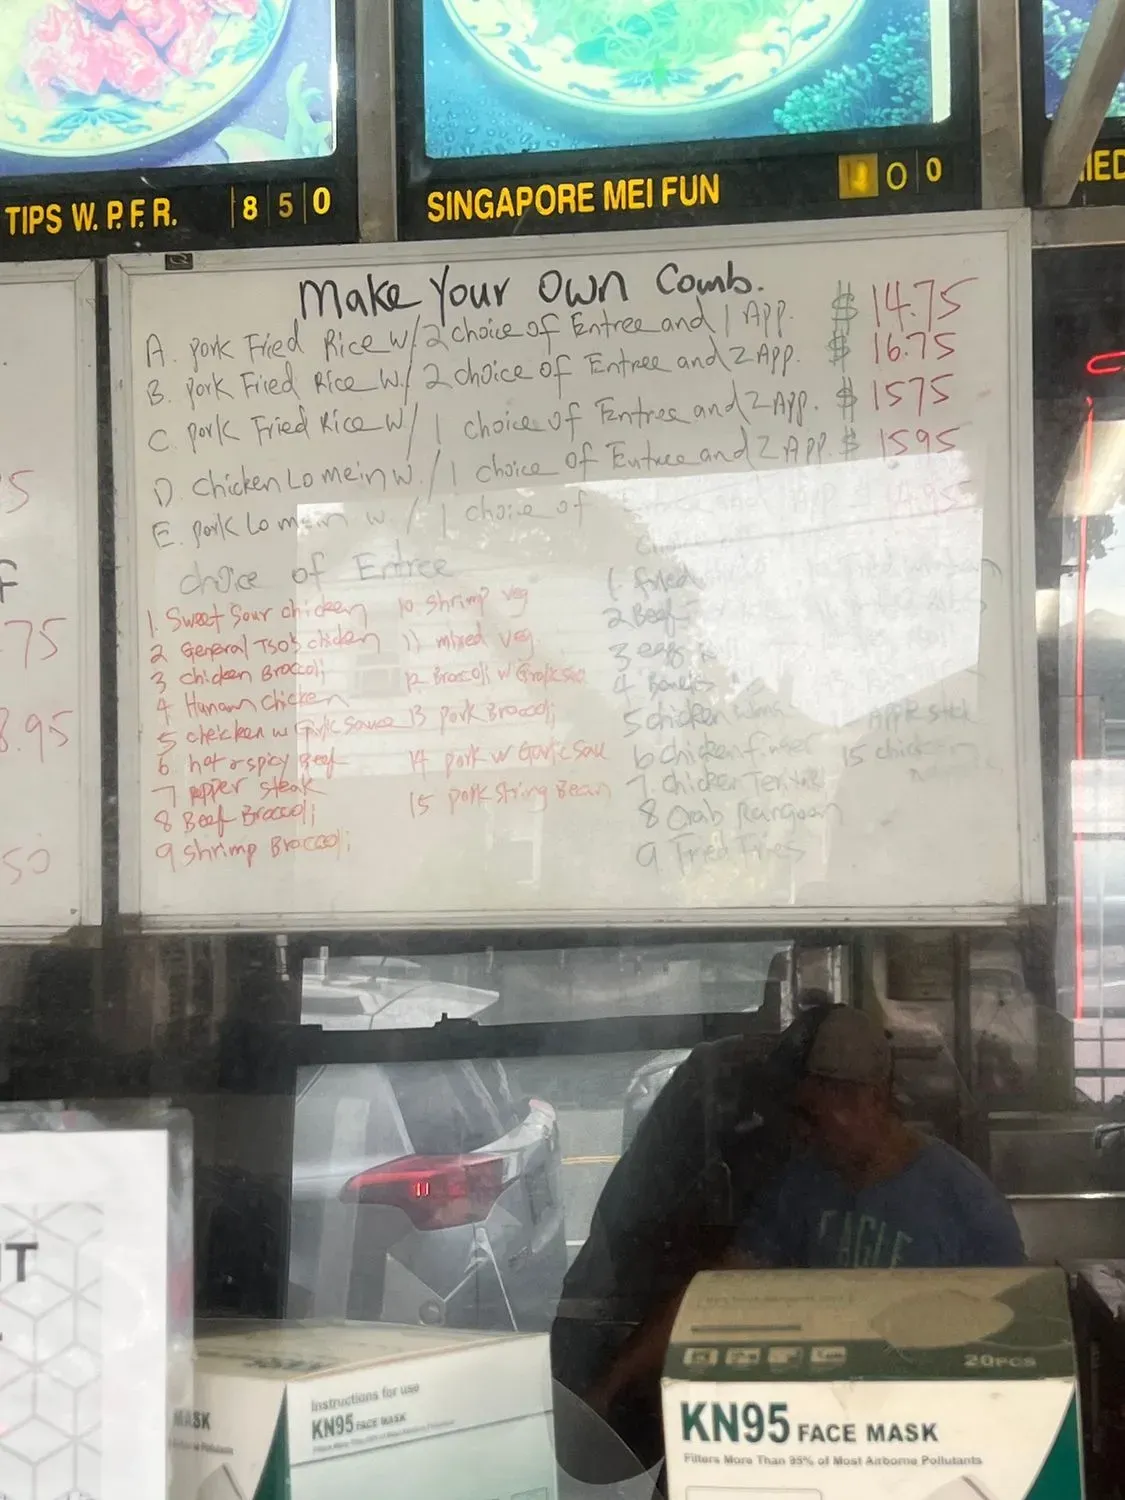 TIPS W. P. F. R. 8 5 0
SINGAPORE MEI FUN 0 0
Make Your Own Comb.
A. pork Fried Rice w/ 2 choice of Entree and 1 App. $ 14.75
B. pork Fried Rice w/ 2 choice of Entree and 2 App. $ 16.75
C. pork Fried Rice w/ 1 choice of Entree and 2 App. $ 1575
D. chicken Lo mein w./ 1 choice of Entree and 2 App. $ 1595
E. pork Lo mein w / 1 choice of
choice of Entree
1. Sweet Sour chicken
2 General TSO's chicken
3 chicken Broccoli
4 Hunan chicken
5 chicken w Garlic sauce
6 hot & spicy Beef
7 pepper steak
8 Beef Broccoli
9 shrimp Broccoli
10 shrimp veg
11 mixed veg
12 Broccoli w Garlic sau
13 pork Broccoli
14 pork w Garlic sau
15 pork string Bean
1. fried
2 Beef
3 egg
4 Boneless
5 chicken wing
6 chicken finger
7. chicken Teriyaki
8 Crab Rangoon
9 Fried Fries
15 chicken
75
8.95
50
EAGLE
MASK
Instructions for use
KN95 FACE MASK
20PCS
KN95 FACE MASK
Filters More Than 95% of Most Airborne Pollutants